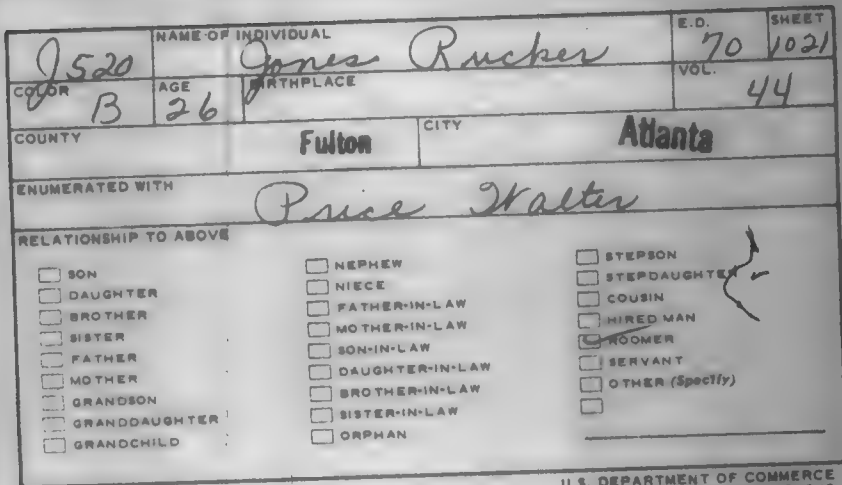 NAME OF INDIVIDUAL E.D. SHEET
J520 Jones Rucker 70 1021
COLOR AGE BIRTHPLACE VOL.
B 26 44
COUNTY Fulton CITY Atlanta
ENUMERATED WITH
Price Walter
RELATIONSHIP TO ABOVE
SON
DAUGHTER
BROTHER
SISTER
FATHER
MOTHER
GRANDSON
GRANDDAUGHTER
GRANDCHILD
NEPHEW
NIECE
FATHER-IN-LAW
MOTHER-IN-LAW
SON-IN-LAW
DAUGHTER-IN-LAW
BROTHER-IN-LAW
SISTER-IN-LAW
ORPHAN
STEPSON
STEPDAUGHTER
COUSIN
HIRED MAN
ROOMER
SERVANT
OTHER (Specify)
U.S. DEPARTMENT OF COMMERCE